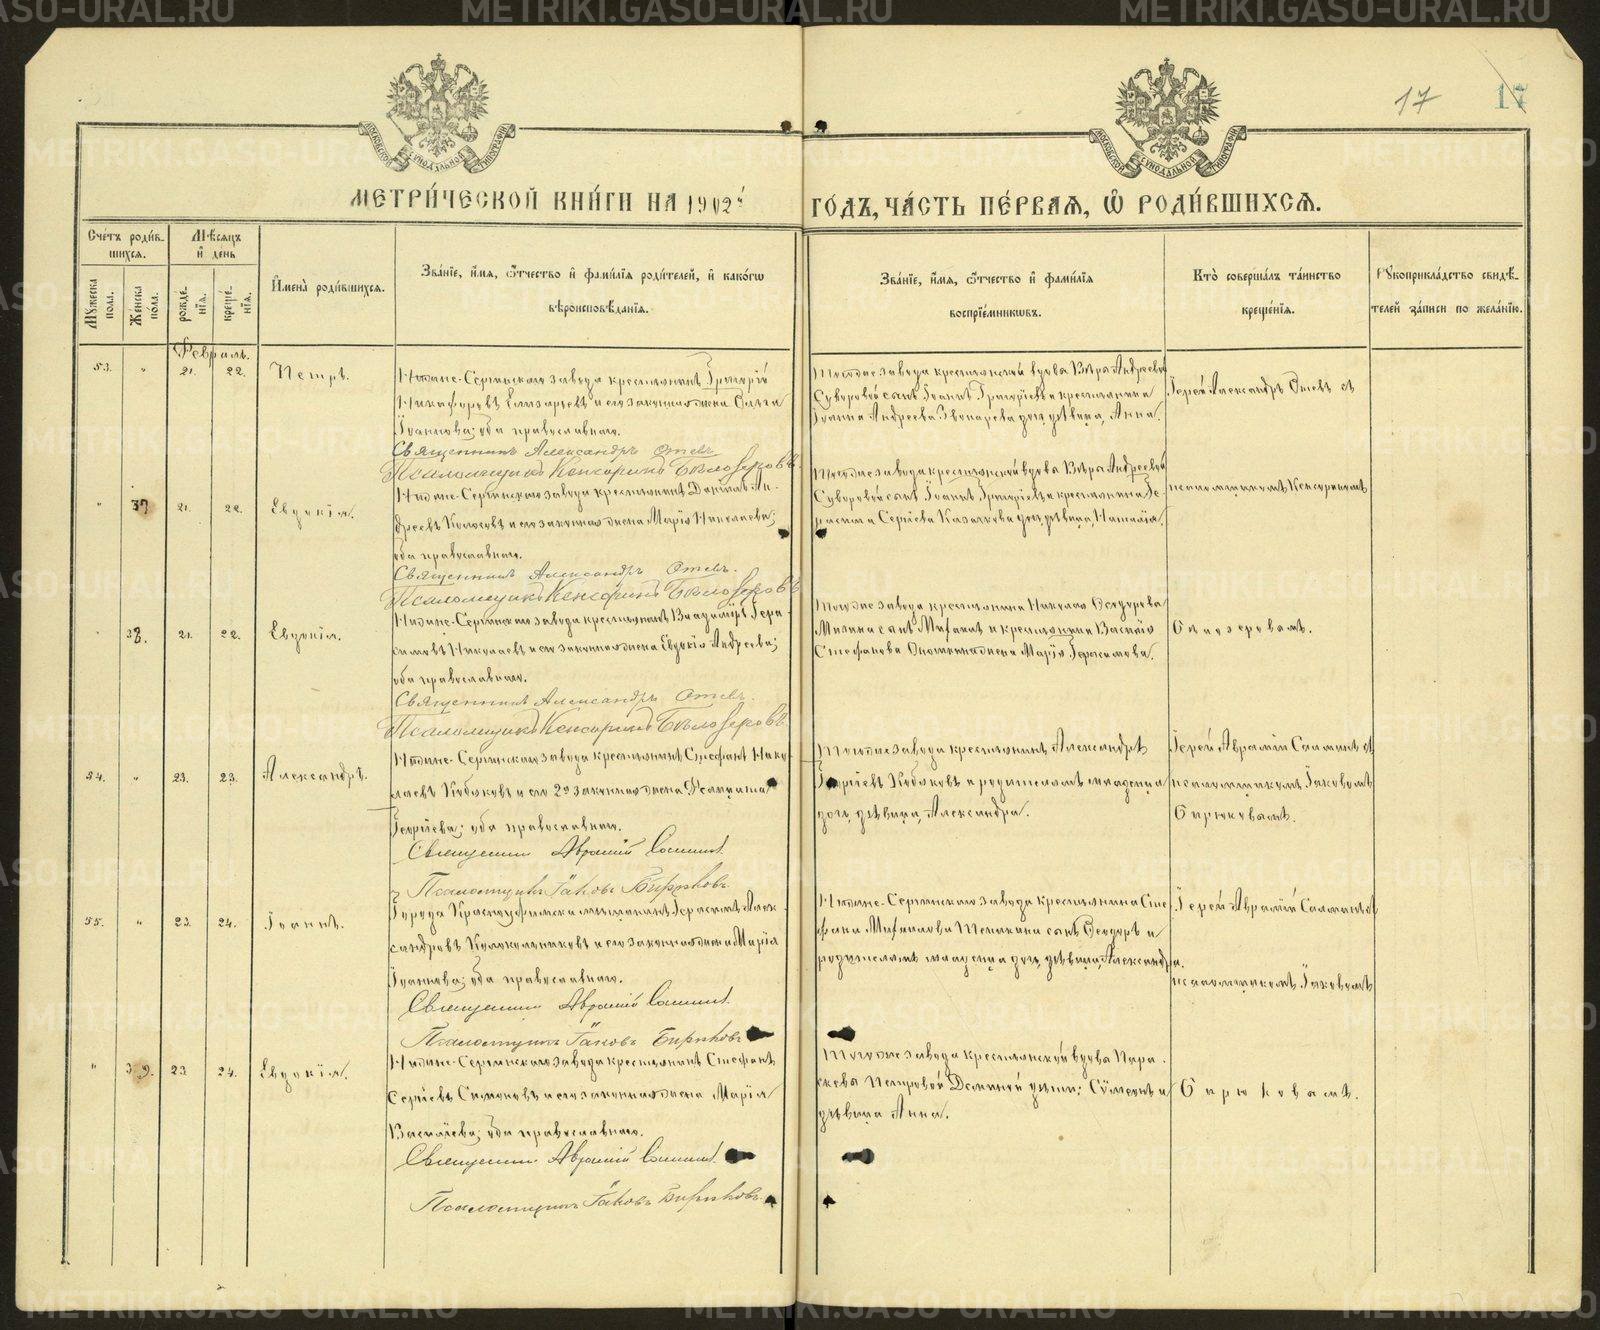 METRIKI.GASO-URAL.RU
17 17
МОСКОВСКОЙ СѴНОДАЛЬНОЙ ТИПОГРАФІИ
МОСКОВСКОЙ СѴНОДАЛЬНОЙ ТИПОГРАФІИ
МЕТРИ́ЧЕСКОЙ КНИ́ГИ НА 1902 ГО́ДЪ, ЧА́СТЬ ПЕ́РВАЯ, Ѡ҆ РОДИ́ВШИХСЯ.
Сче́тъ роди́в-
шихся.
Мѣ́сяцъ
и҆ де́нь
Му́жеска
пола.
Же́нска
по́ла.
рожде-
нїя.
креще́-
нїя.
И҆мена̀ роди́вшихся.
Зва́нїе, и҆́мя, ѻ҆́тчество и҆ фами́лїя роди́телей, и҆ како́гѡ
вѣроисповѣ́данїя.
Зва́нїе, и҆́мя, ѻ҆́тчество и҆ фами́лїя
воспрїе́мникѡвъ.
Кто̀ соверша́лъ та́инство
креще́нїя.
Рꙋкоприкла́дство свидѣ́-
телей за́писи по жела́нїю.
Февраль.
53. " 21. 22. Петръ.
Нижне-Сергинскаго завода крестьянинъ Григорій
Никифоровъ Елизарьевъ и его законная жена Ольга
Іоаннова; оба православные.
Священникъ Александръ Отевъ
Псаломщикъ Кенсоринъ Бѣлозеровъ
Того же завода крестьянской вдовы Вѣры Андреевой
Суворовой сынъ Іоаннъ Григоріевъ и крестьянина
Іоанна Андреева Звонарева дочь дѣвица, Анна.
Іерей Александръ Отевъ съ
" 37 21. 22. Евдокія.
Нижне-Сергинскаго завода крестьянинъ Даніилъ Ан-
дреевъ Колосовъ и его законная жена Марія Николаева;
оба православные.
Священникъ Александръ Отевъ.
Псаломщикъ Кенсоринъ Бѣлозеровъ
Того же завода крестьянской вдовы Вѣры Андреевой
Суворовой сынъ Іоаннъ Григоріевъ и крестьянина Ге-
расима Сергіева Казакова дочь, дѣвица, Наталія.
псаломщикомъ Кенсориномъ
" 38. 21. 22. Евдокія.
Нижне-Сергинскаго завода крестьянинъ Владиміръ Гера-
симовъ Николаевъ и его законная жена Евдокія Андреева;
оба православные.
Священникъ Александръ Отевъ.
Псаломщикъ Кенсоринъ Бѣлозеровъ
Того же завода крестьянина Николая Ѳеодорова
Мизина сынъ Михаилъ и крестьянина Василія
Стефанова жена Марія Герасимова.
Бѣлозеровымъ.
54. " 23. 23. Александръ.
Нижне-Сергинскаго завода крестьянинъ Стефанъ Нико-
лаевъ Кобяковъ и его 2я законная жена
Георгіева; оба православные.
Священникъ Авраамій
Псаломщикъ Іаковъ Бирюковъ
Того же завода крестьянинъ Александръ
Георгіевъ Кобяковъ и родителямъ младенца
дочь, дѣвица, Александра.
Іерей Авраамій съ
псаломщикомъ Іаковомъ
Бирюковымъ.
55. " 23. 24. Іоаннъ.
Города Красноуфимска мѣщанинъ Герасимъ Алек-
сандровъ Колокольниковъ и его законная жена Марія
Іоаннова; оба православные.
Священникъ Авраамій
Псаломщикъ Іаковъ Бирюковъ
Нижне-Сергинскаго завода крестьянина Сте-
фана Михаилова сынъ Ѳеодоръ и
родителямъ младенца дочь, дѣвица, Александра.
Іерей Авраамій съ
псаломщикомъ Іаковомъ
" 39. 23. 24. Евдокія.
Нижне-Сергинскаго завода крестьянинъ Стефанъ
Сергіевъ Симоновъ и его законная жена Марія
Василіева; оба православные.
Священникъ Авраамій
Псаломщикъ Іаковъ Бирюковъ
Того же завода крестьянской вдовы Пара-
скевы Петровой Деминой дѣти: Сѵмеонъ и
дѣвица Анна.
Бирюковымъ.